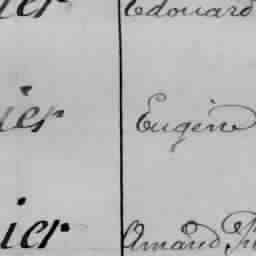 ier Edouard
ier Eugène
ier Amand